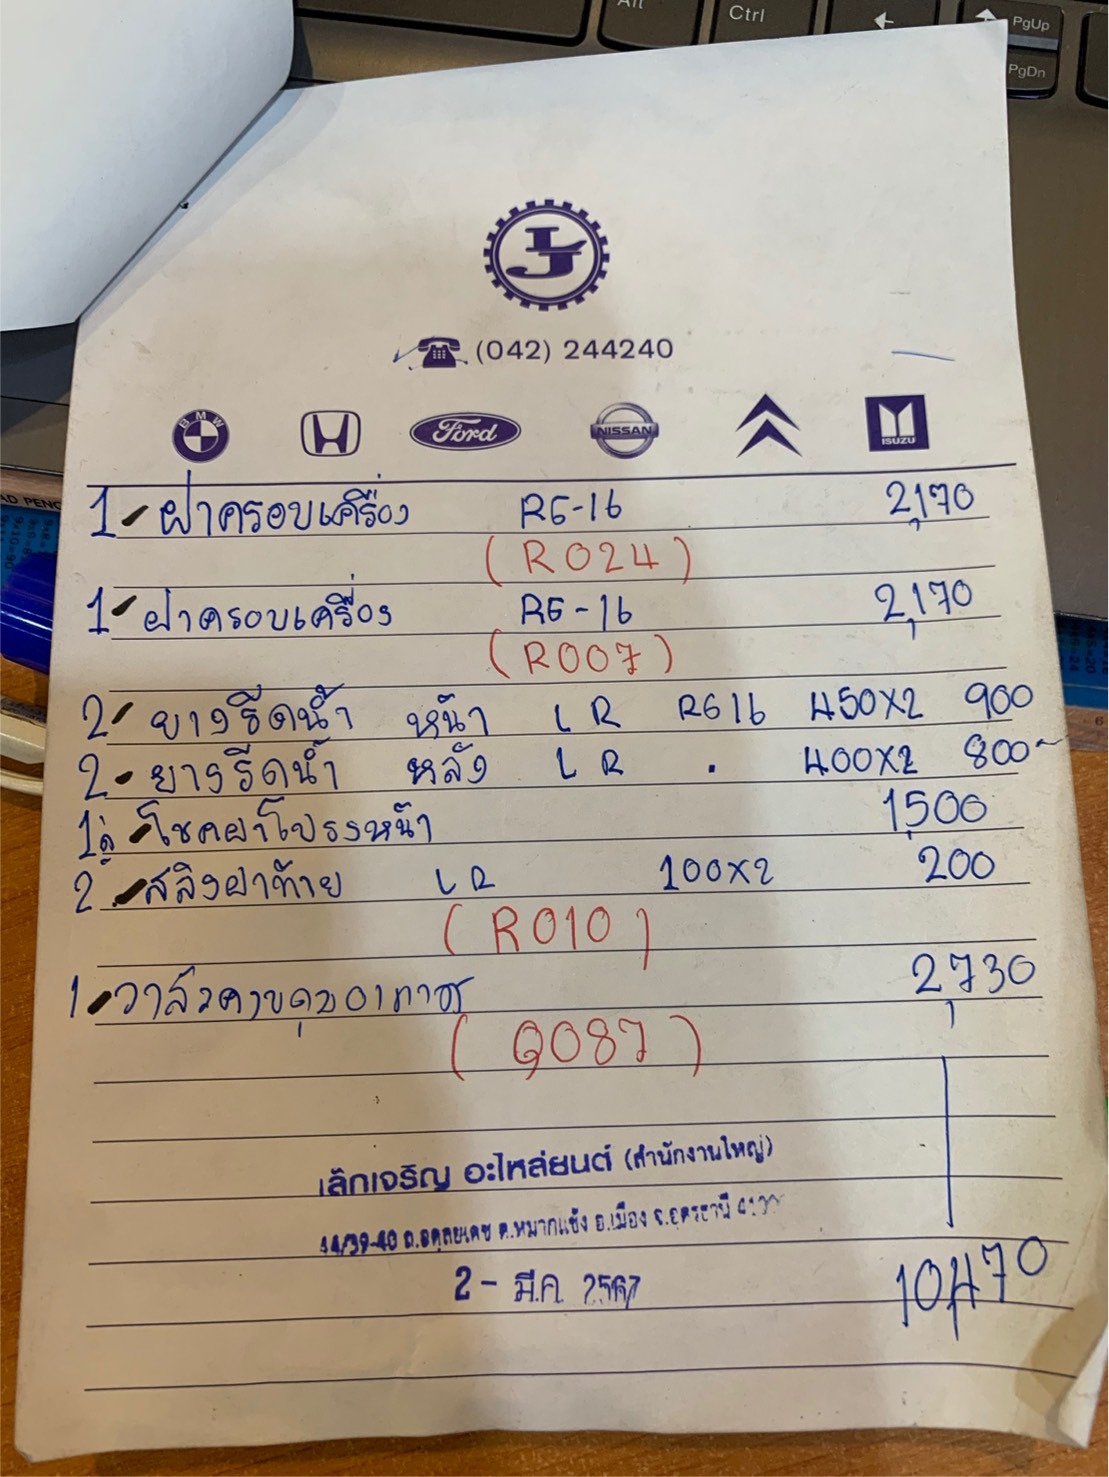 Alt Ctrl PgUp
PgDn
(042) 244240
BMW Ford NISSAN ISUZU
1 - ฝาครอบเครื่อง RG-16 2,170
(R024)
1 - ฝาครอบเครื่อง RG-16 2,170
(R007)
2 - ยางรีดน้ำ หน้า L R RG16 450X2 900
2 - ยางรีดน้ำ หลัง L R . 400X2 800-
โชคฝาโปรงหน้า 1,500
2 - สลิงฝาท้าย L R 100X2 200
(R010)
1 - วาล์วควบคุมอากาศ 2,730
(Q087)
เล็กเจริญ อะไหล่ยนต์ (สำนักงานใหญ่)
44/39-40 ถ.อดุลยเดช ต.หมากแข้ง อ.เมือง จ.อุดรธานี
2 - มี.ค. 2567
10,470